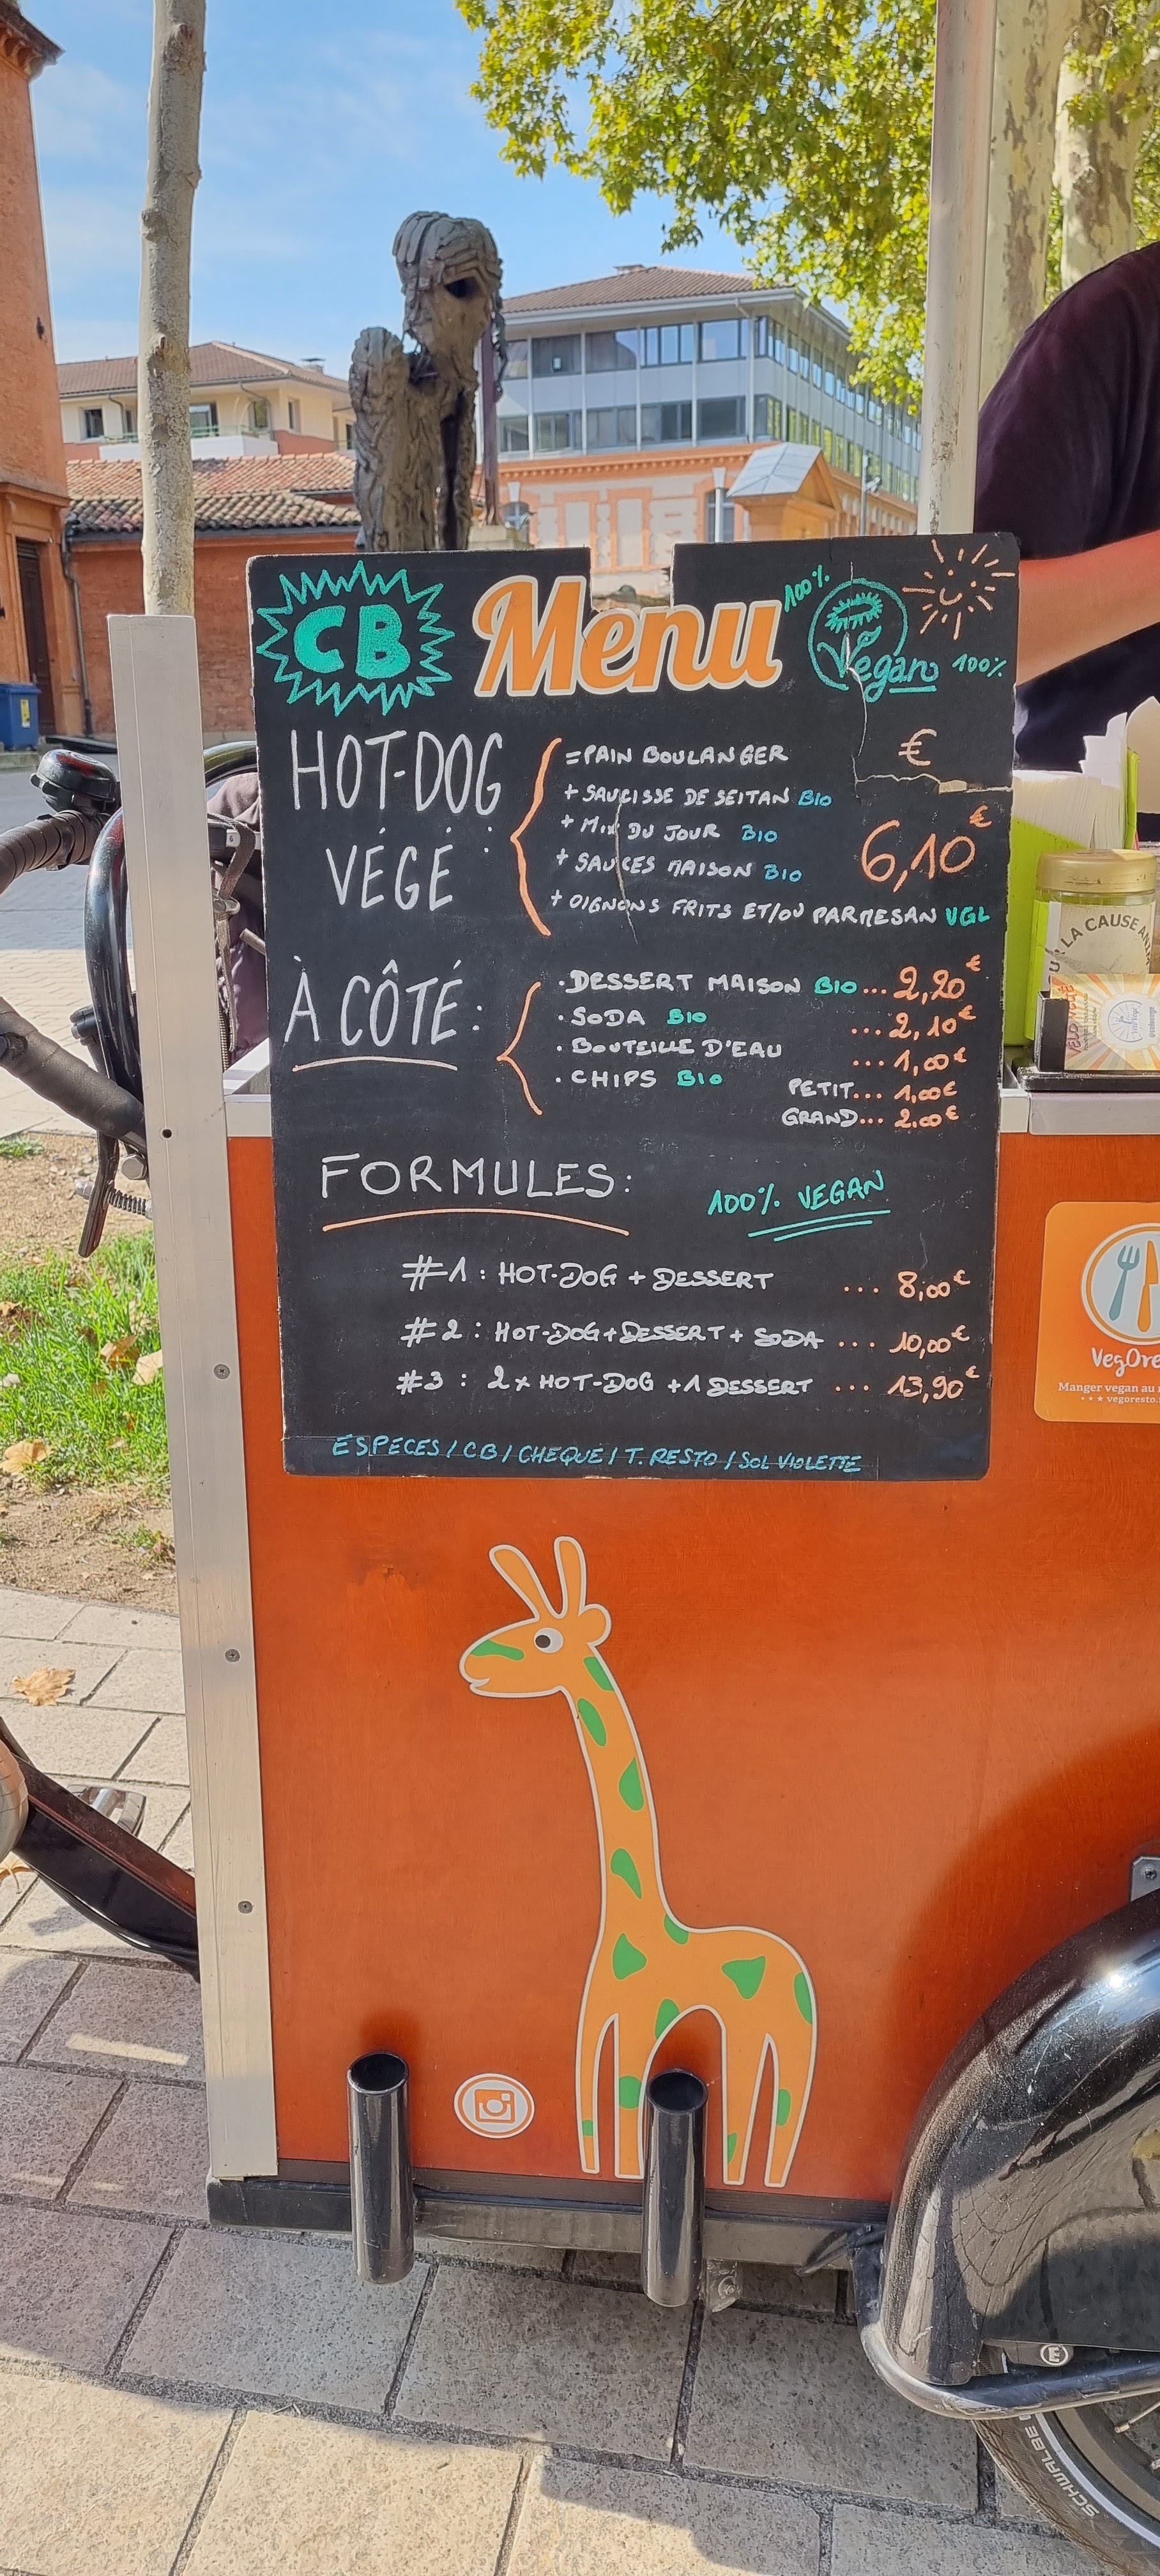 CB
Menu
100%
Vegan
100%
HOT-DOG VÉGÉ :
€
= PAIN BOULANGER
+ SAUCISSE DE SEITAN BIO
+ MIX DU JOUR BIO
+ SAUCES MAISON BIO
+ OIGNONS FRITS ET/OU PARMESAN VGL
6,10€
À CÔTÉ :
· DESSERT MAISON BIO ... 2,20€
· SODA BIO ... 2,10€
· BOUTEILLE D'EAU ... 1,00€
· CHIPS BIO PETIT... 1,00€
GRAND... 2.00€
FORMULES:
100% VEGAN
#1 : HOT-DOG + DESSERT ... 8,00€
#2 : HOT-DOG+DESSERT + SODA ... 10,00€
#3 : 2 x HOT-DOG +1 DESSERT ... 13,90€
ESPECES / CB / CHEQUE / T. RESTO / SOL VIOLETTE
LA CAUSE
VegOre
Manger vegan au
vegoresto.
E
SCHWALBE